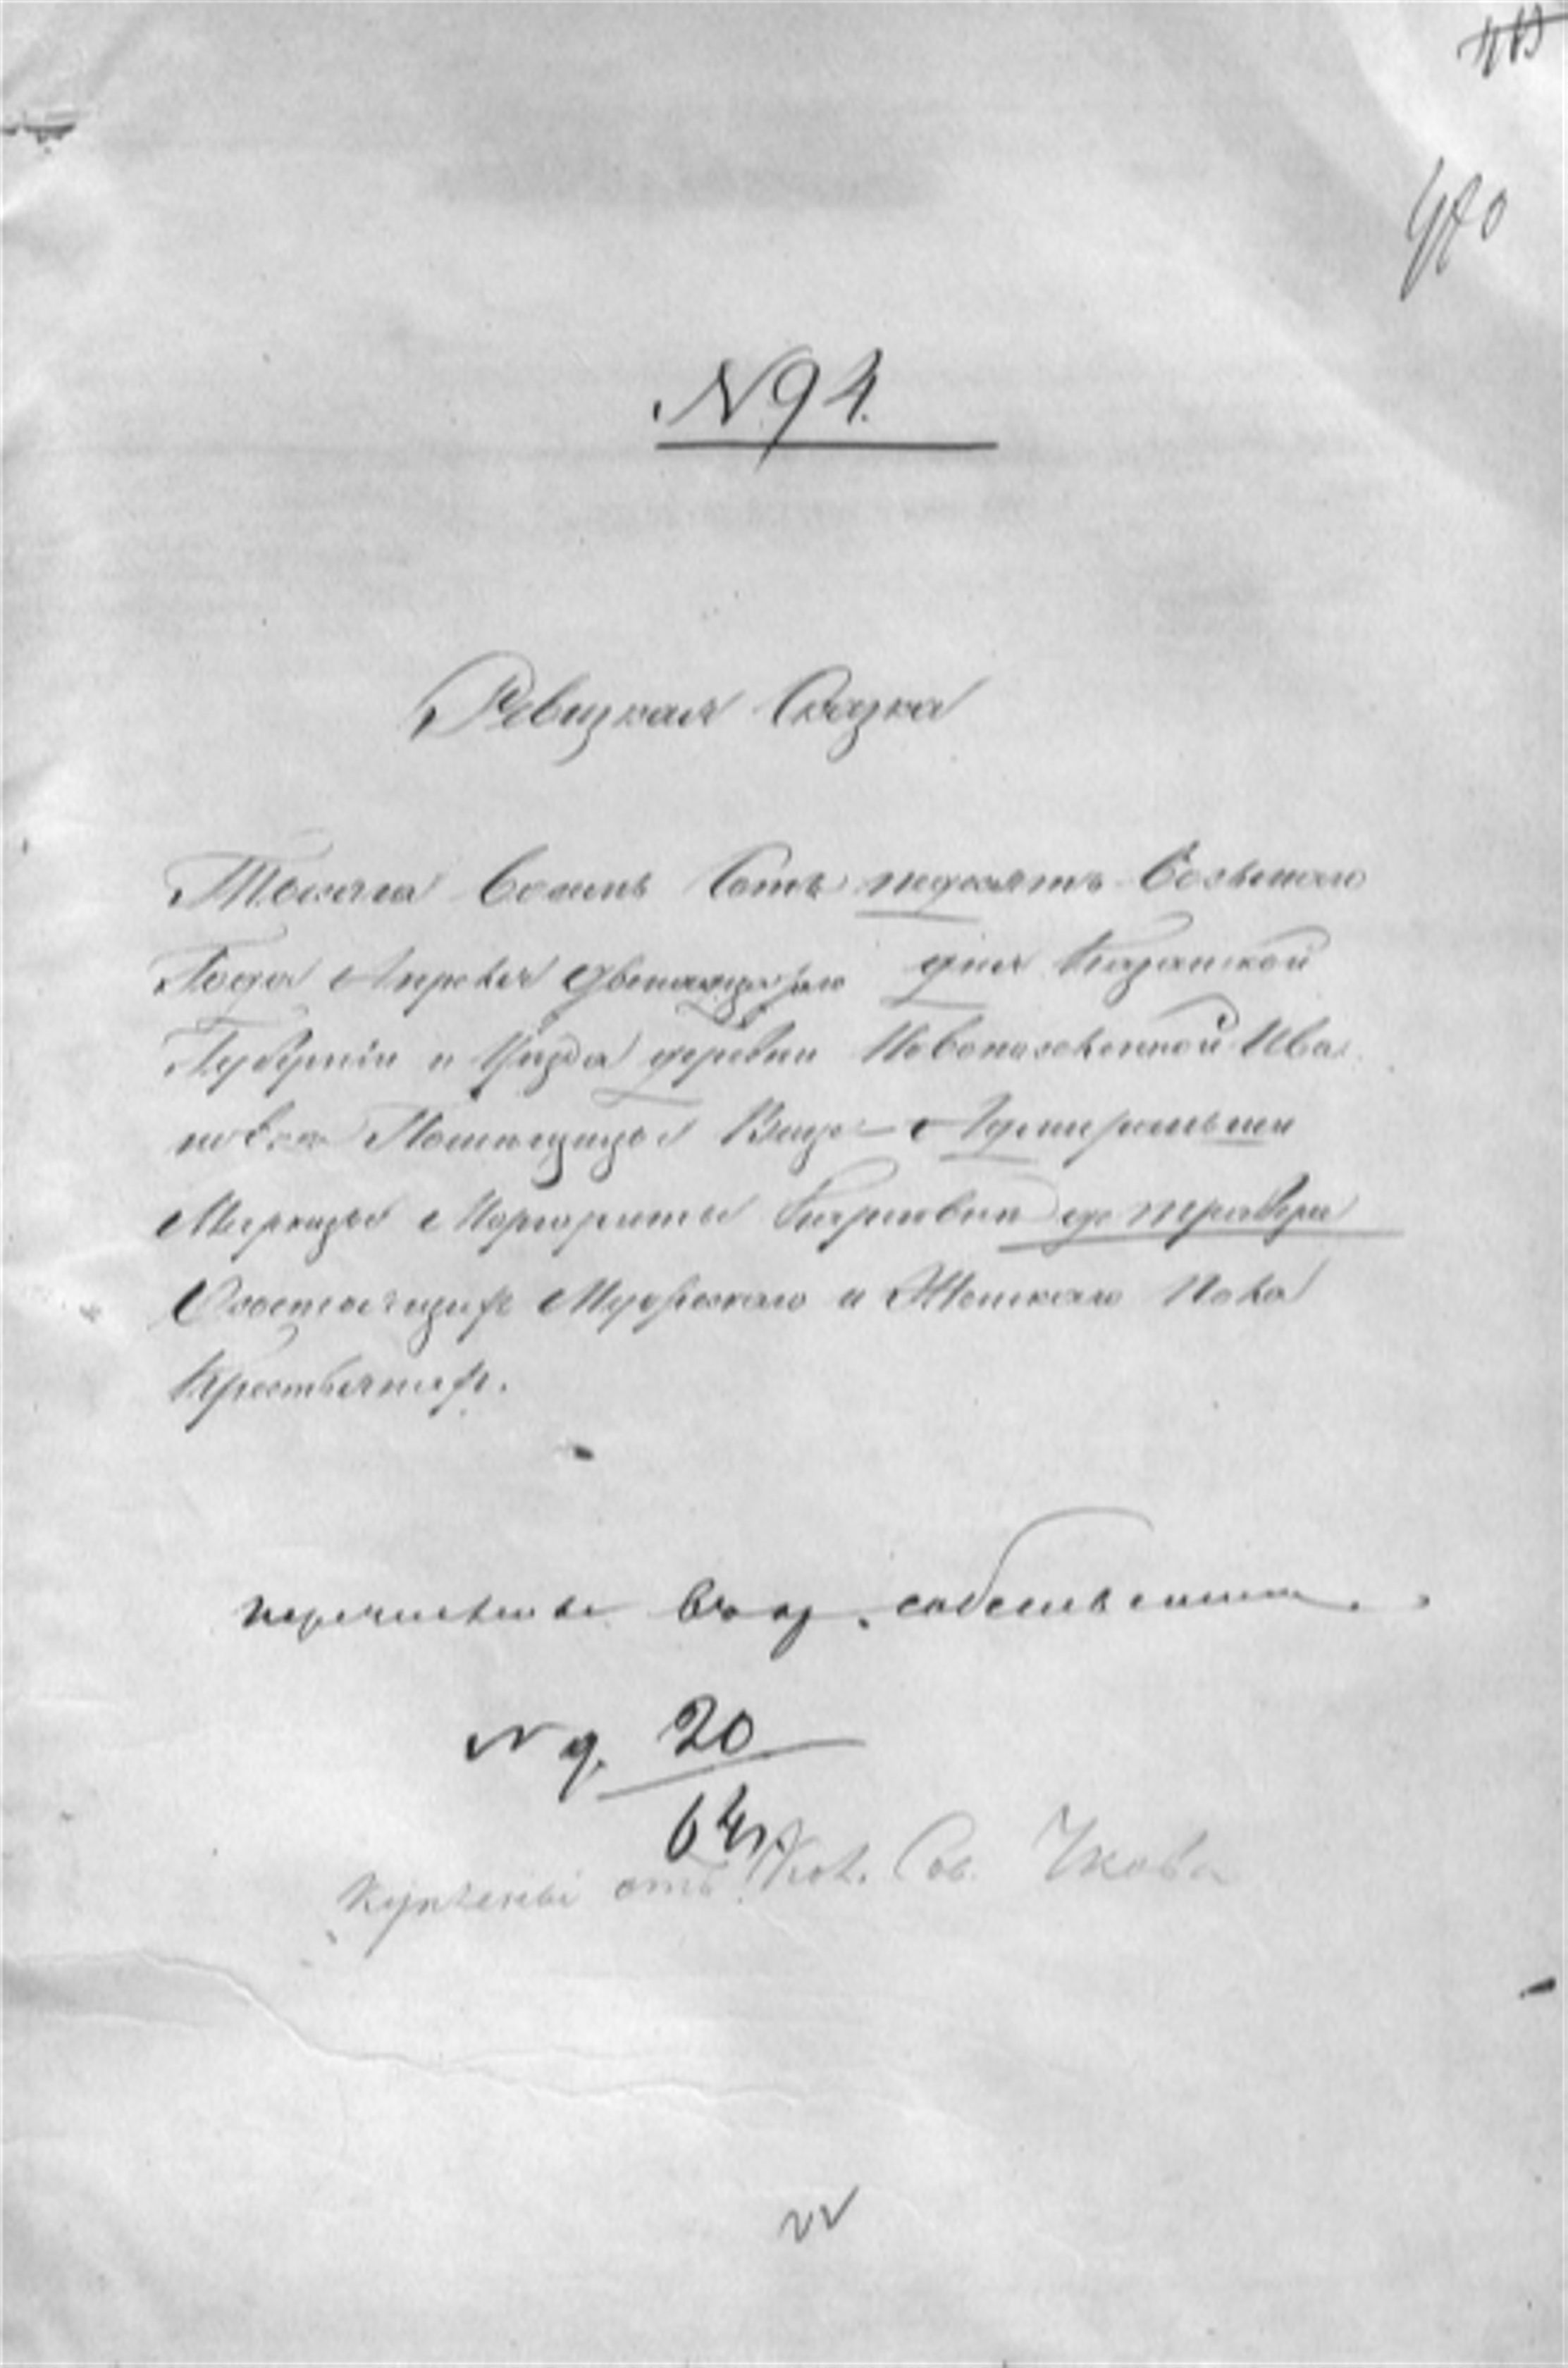 470
N. 94.
Ревизкая Сказка
Тысяча Восемь Сотъ педесятъ Восьмаго
Года Апреля двенадцатаго дня Казанской
Губерніи и Уезда деревни Новопоселенной Ива
новка Помещицы Вице-Адмиральши
Маркизы Маргариты Карловны де Траверсе
О состоящихъ Мужескаго и Женскаго Пола
Крестьянахъ.
перечислены собственники
N д. 20
64 г.
Куплены отъ Кол. Сов.